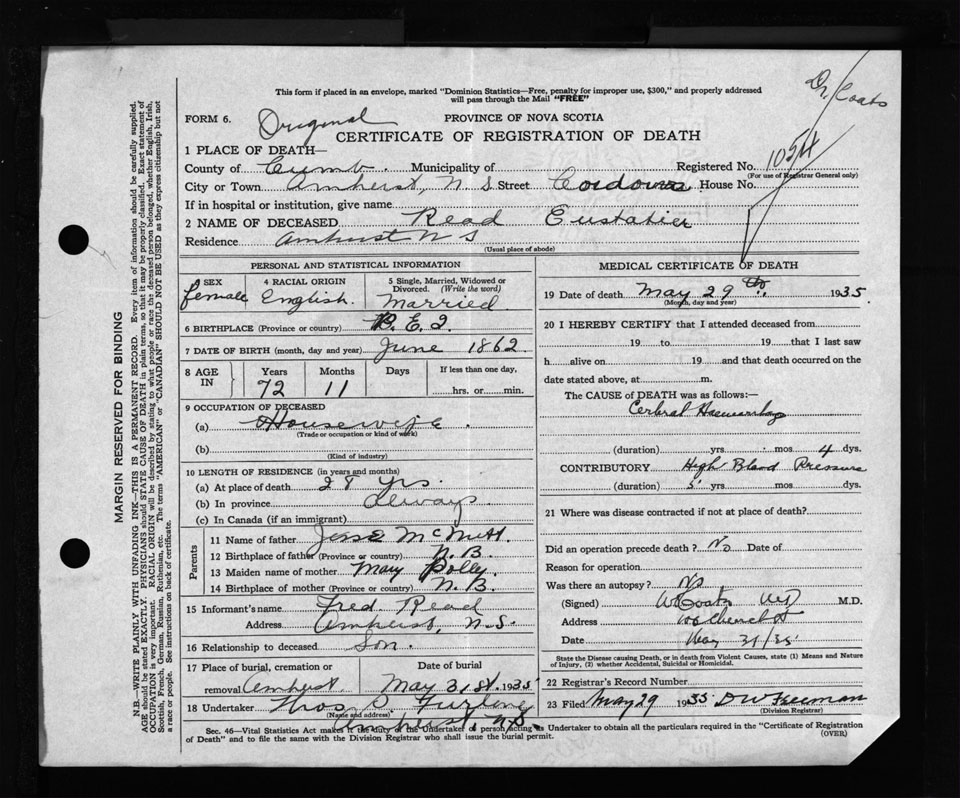 Dr. Coats
This form if placed in an envelope, marked "Dominion Statistics—Free, penalty for improper use, $300," and properly addressed
will pass through the Mail "FREE"
FORM 6. Original PROVINCE OF NOVA SCOTIA
CERTIFICATE OF REGISTRATION OF DEATH
1 PLACE OF DEATH—
County of Cumb. Municipality of Registered No. 1054
(For use of Registrar General only)
City or Town Amherst, N S Street Cordova House No.
If in hospital or institution, give name
2 NAME OF DECEASED Read Eustatia
Residence Amherst N S
(Usual place of abode)
PERSONAL AND STATISTICAL INFORMATION
3 SEX 4 RACIAL ORIGIN 5 Single, Married, Widowed or
Divorced. (Write the word)
female English. Married
6 BIRTHPLACE (Province or country) P.E.I.
7 DATE OF BIRTH (month, day and year) June 1862
8 AGE IN Years Months Days If less than one day,
72 11 hrs. or min.
9 OCCUPATION OF DECEASED
(a) Housewife.
(Trade or occupation or kind of work)
(b)
(Kind of industry)
10 LENGTH OF RESIDENCE (in years and months)
(a) At place of death 28 yrs.
(b) In province always
(c) In Canada (if an immigrant)
Parents
11 Name of father Jesse McNutt.
12 Birthplace of father (Province or country) N.B.
13 Maiden name of mother Mary Polley
14 Birthplace of mother (Province or country) N.B.
15 Informant's name Fred. Read
Address Amherst, N.S.
16 Relationship to deceased Son.
17 Place of burial, cremation or Date of burial
removal Amherst. May 31st. 1935
18 Undertaker Thos. Furlong
(Name and address)
Amherst N.S.
MEDICAL CERTIFICATE OF DEATH
19 Date of death May 29th. 1935.
(Month, day and year)
20 I HEREBY CERTIFY that I attended deceased from
19 to 19 that I last saw
h alive on 19 and that death occurred on the
date stated above, at m.
The CAUSE of DEATH was as follows:—
Cerbral Haemorrhag
(duration) yrs. mos 4 dys.
CONTRIBUTORY High Blood Pressure
(duration) 5 yrs. mos. dys.
21 Where was disease contracted if not at place of death?
Did an operation precede death? No Date of
Reason for operation
Was there an autopsy? No
(Signed) Coats MD M.D.
Address Amherst
Date May 31/35
State the Disease causing Death, or in death from Violent Causes, state (1) Means and Nature
of Injury, (2) whether Accidental, Suicidal or Homicidal.
22 Registrar's Record Number
23 Filed May 29 1935 D W Freeman
(Division Registrar)
Sec. 46—Vital Statistics Act makes it the duty of the Undertaker or person acting as Undertaker to obtain all the particulars required in the "Certificate of Registration
of Death" and to file the same with the Division Registrar who shall issue the burial permit. (OVER)
MARGIN RESERVED FOR BINDING
N.B.—WRITE PLAINLY WITH UNFADING INK—THIS IS A PERMANENT RECORD. Every item of information should be carefully supplied.
AGE should be stated EXACTLY. PHYSICIANS should STATE CAUSE OF DEATH in plain terms, so that it may be properly classified. Exact statement of
OCCUPATION is very important. RACIAL ORIGIN will be described by stating to what people or race the deceased person belonged, whether English, Irish,
Scottish, French, German, Russian, Ruthenian, etc. The terms "AMERICAN" or "CANADIAN" SHOULD NOT BE USED as they express citizenship but not
a race or people. See instructions on back of certificate.